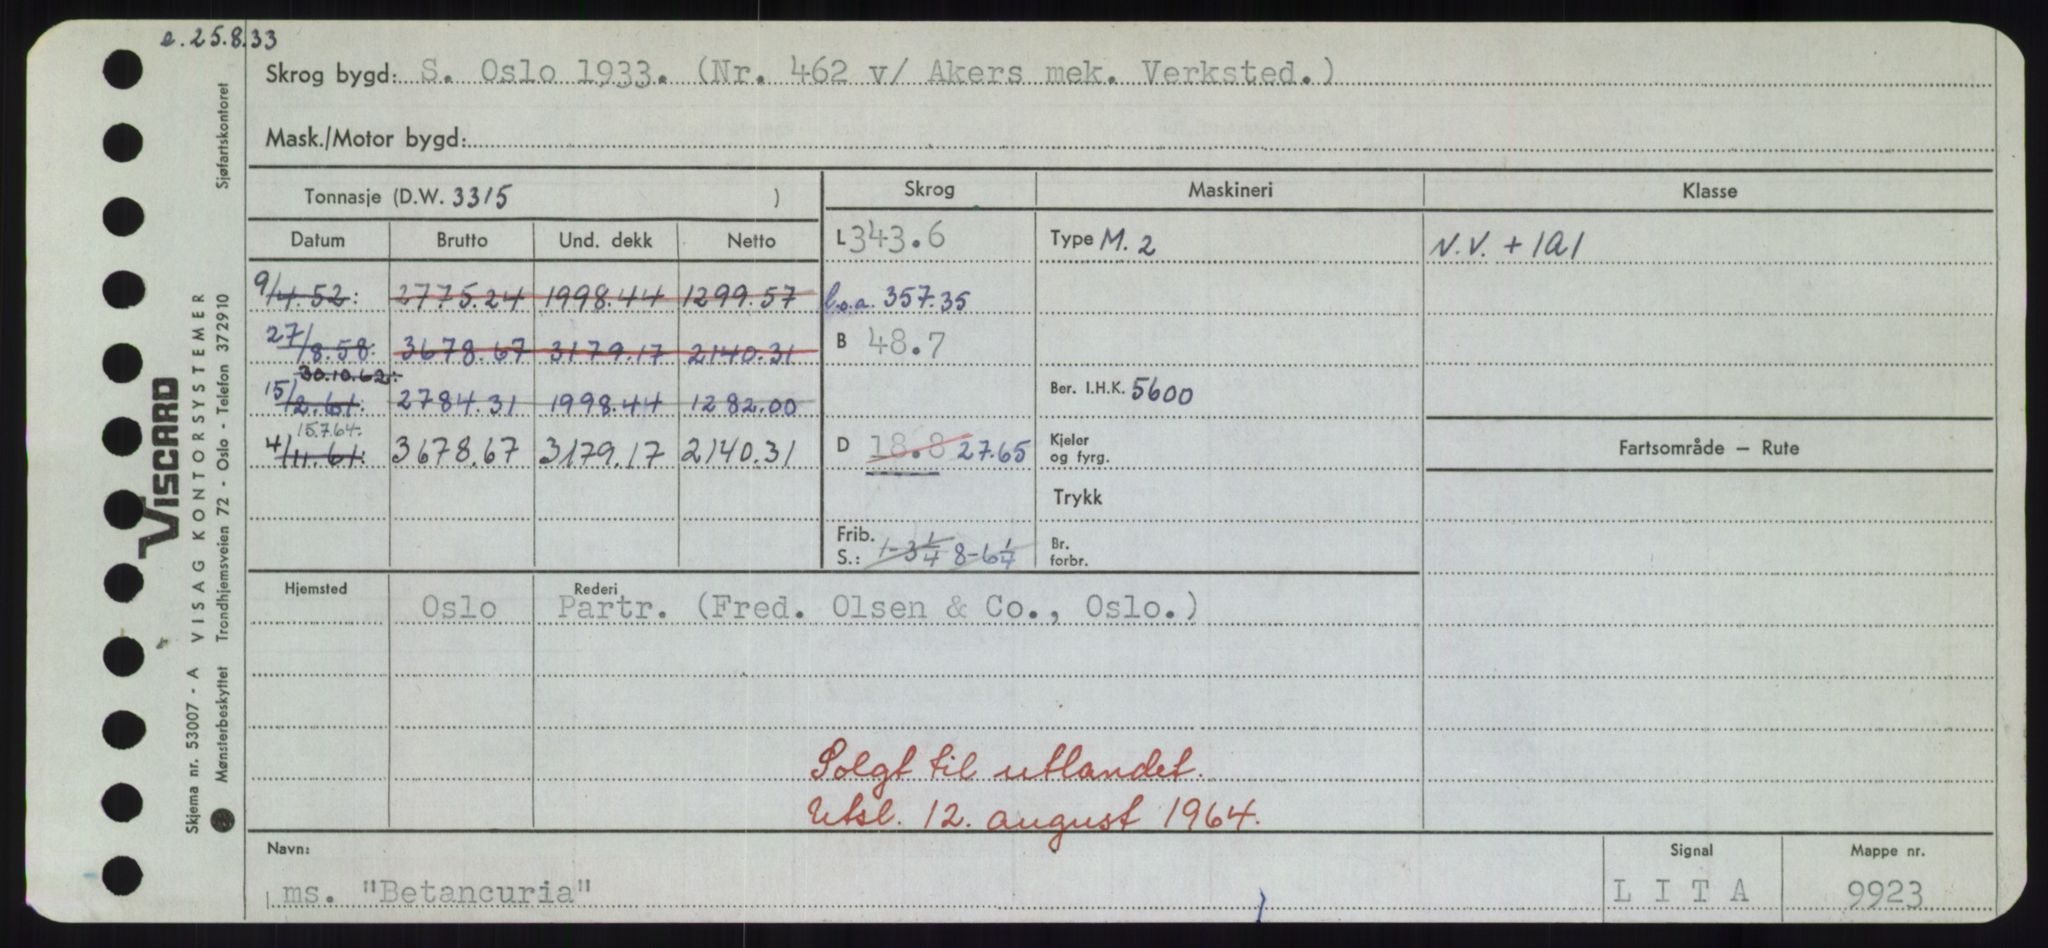 e. 25.8.33
Skrog bygd: S. Oslo 1933. (Nr. 462 v/ Akers mek. Verksted.)
Mask./Motor bygd:
Tonnasje (D.W. 3315 )
Skrog
Maskineri
Klasse
Datum Brutto Und. dekk Netto
L 343.6
Type M. 2
N.V. + 1A1
9/4.52: 2775.24 1998.44 1299.57
l.o.a. 357.35
27/8.58: 3678.67 3179.17 2140.31
B 48.7
30.10.62:
15/2.61: 2784.31 1998.44 1282.00
Ber. I.H.K. 5600
15.7.64:
4/11.61: 3678.67 3179.17 2140.31
D 18.8 27.65
Kjeler
og fyrg.
Fartsområde – Rute
Trykk
Frib.
S.: 1-3 1/4 8-6 1/4
Br.
forbr.
Hjemsted Rederi
Oslo Partr. (Fred. Olsen & Co., Oslo.)
Solgt til utlandet.
Utsl. 12. august 1964.
Navn: Signal Mappe nr.
ms. "Betancuria" L I T A 9923
VISCARD
Skjema nr. 53007 - A VISAG KONTORSYSTEMER
Mønsterbeskyttet Trondhjemsveien 72 - Oslo - Telefon 372910 Sjøfartskontoret